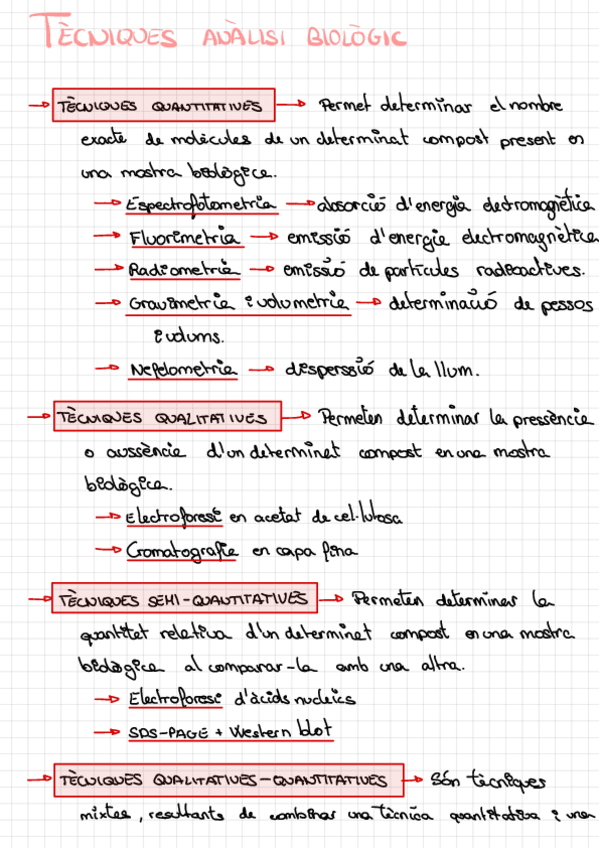 TÈCNIQUES ANÀLISI BIOLÒGIC
→ TÈCNIQUES QUANTITATIVES → Permet determinar el nombre
exacte de molècules de un determinat compost present en
una mostra biològica.
→ Espectrofotometria → absorció d'energia electromagnètica
→ Fluorimetria → emissió d'energia electromagnètica
→ Radiometria → emissió de partícules radioactives.
→ Gravimetria i volumetria → determinació de pessos
i volums.
→ Nefelometria → disperssió de la llum.
→ TÈCNIQUES QUALITATIVES → Permeten determinar la pressència
o aussència d'un determinat compost en una mostra
biològica.
→ Electroforesi en acetat de cel·lulosa
→ Cromatografia en capa fina
→ TÈCNIQUES SEMI-QUANTITATIVES → Permeten determinar la
quantitat relativa d'un determinat compost en una mostra
biològica al comparar-la amb una altra.
→ Electroforesi d'àcids nucleics
→ SDS-PAGE + Western blot
→ TÈCNIQUES QUALITATIVES-QUANTITATIVES → Són tècniques
mixtes, resultants de combinar una tècnica quantitativa i una